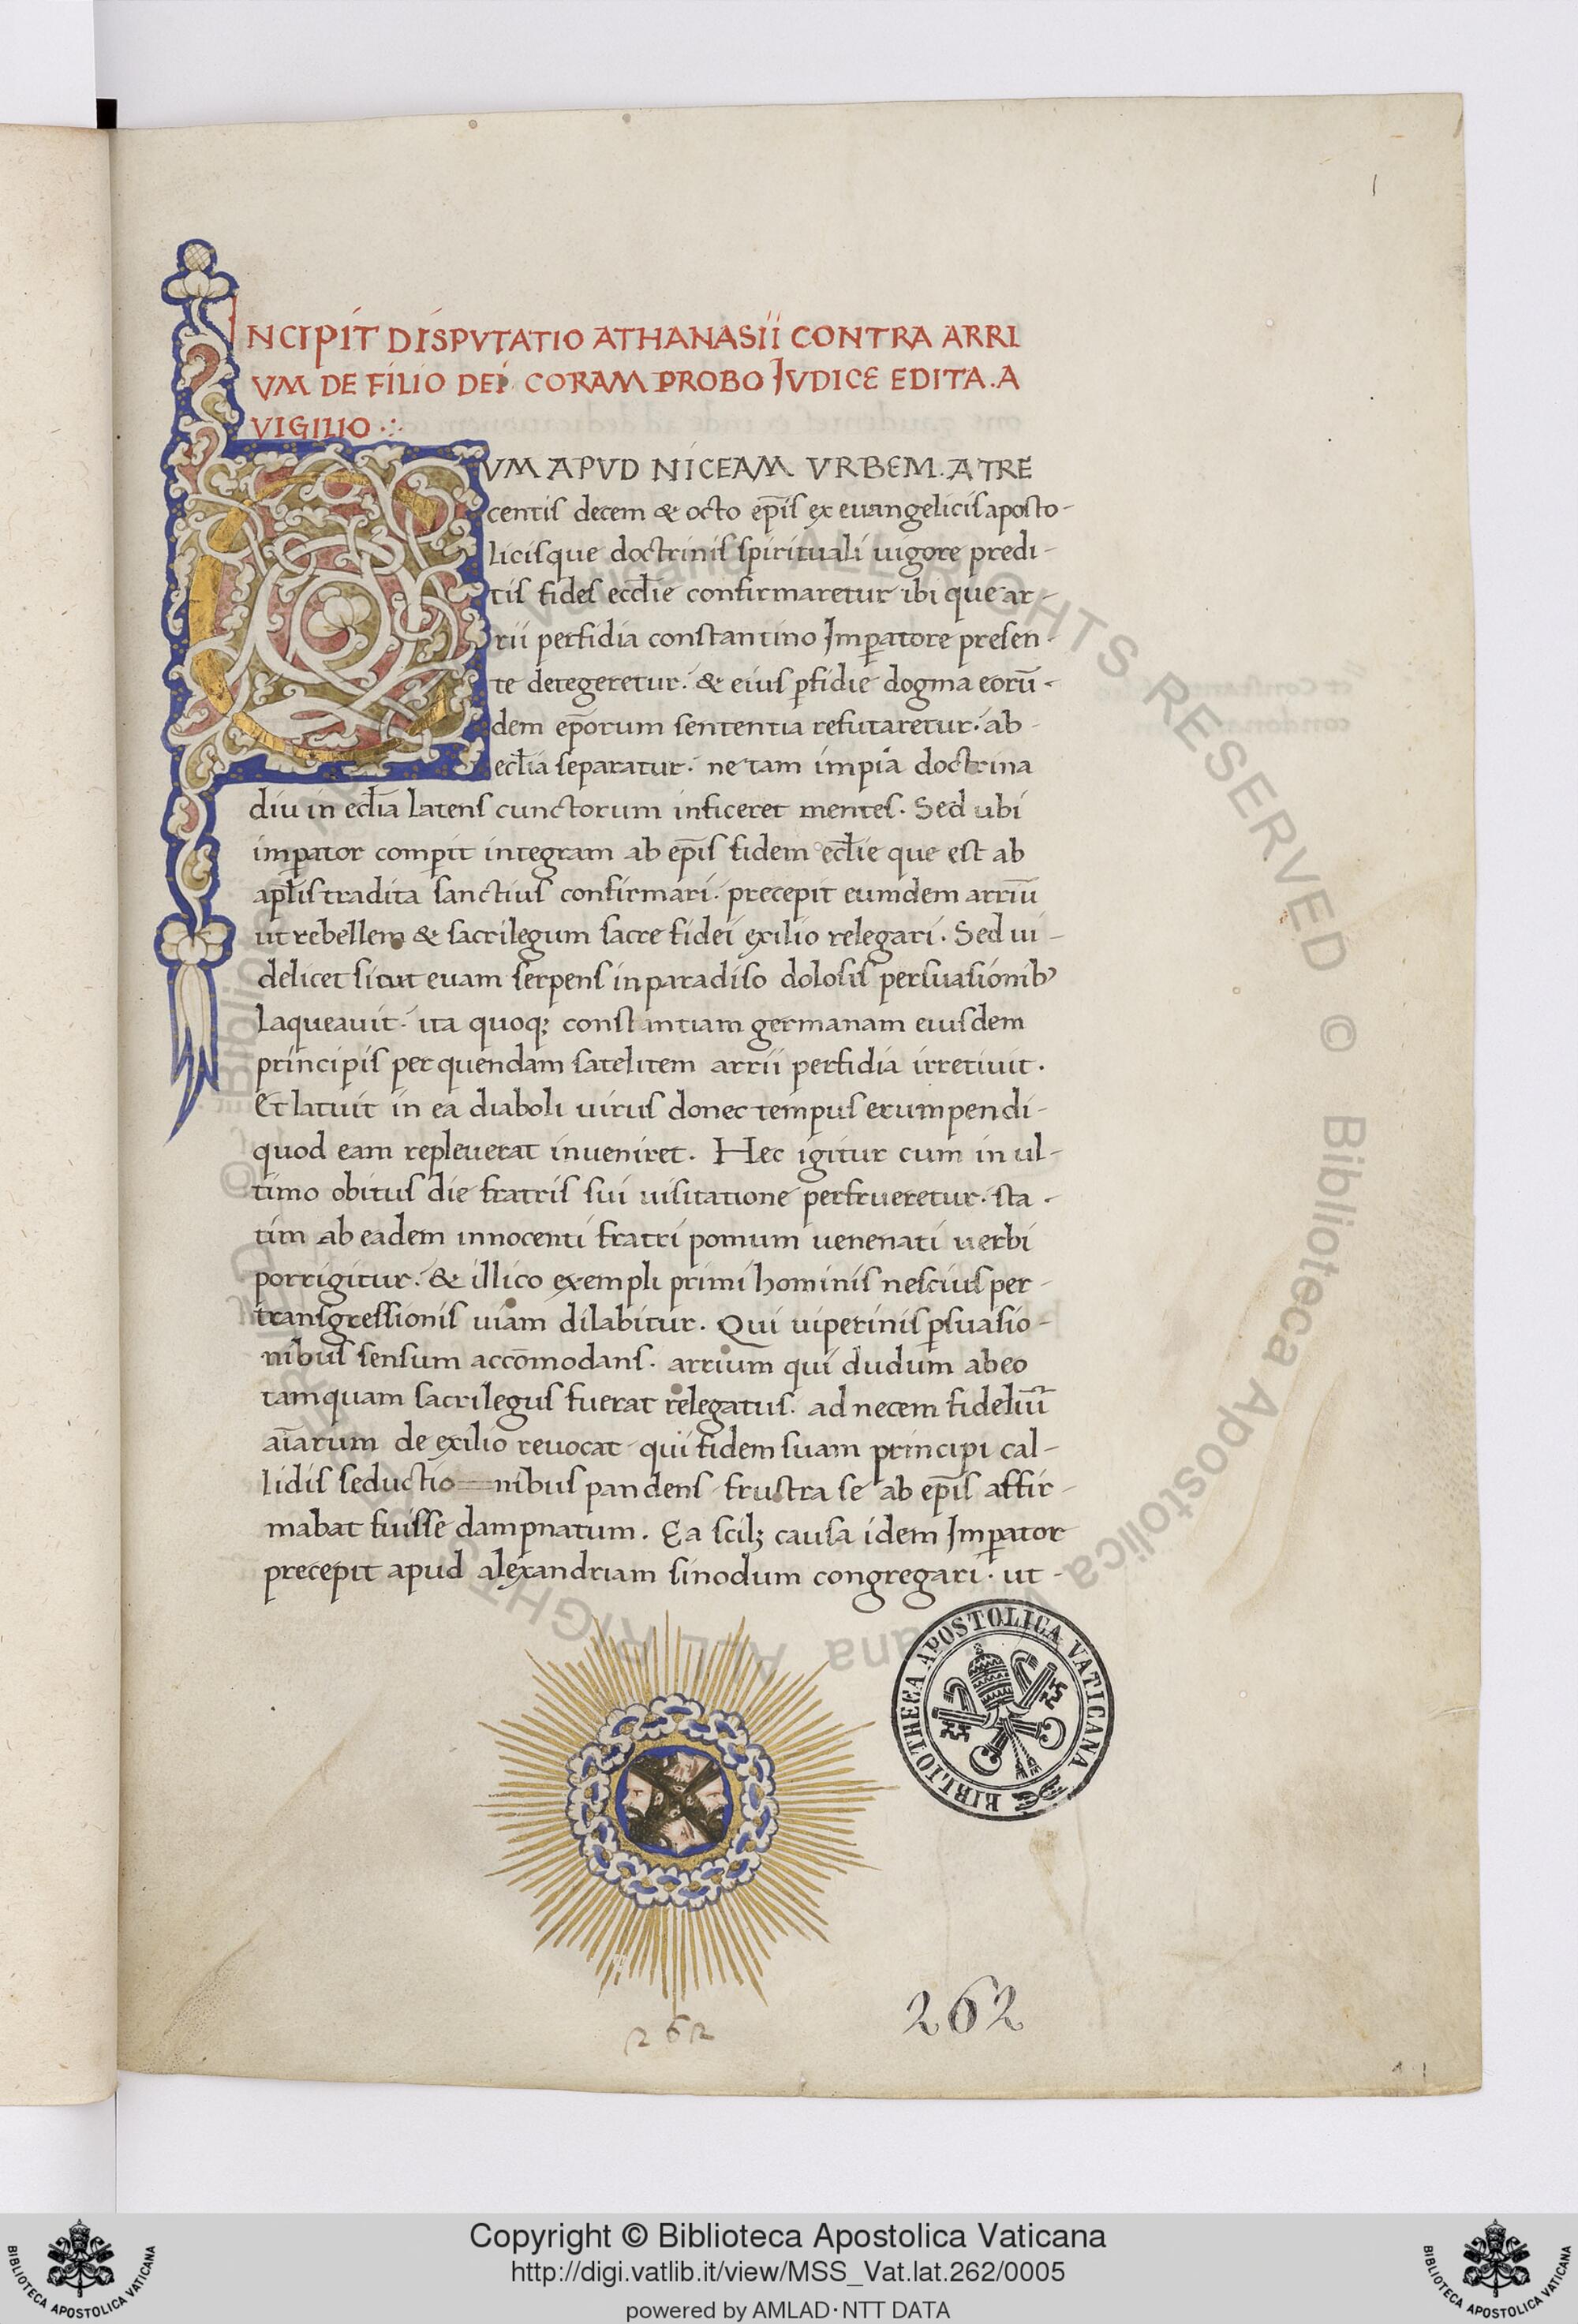 1
INCIPIT DISPVTATIO ATHANASII CONTRA ARRI
VM DE FILIO DEI. CORAM PROBO IVDICE EDITA. A
VIGILIO .:
CVM APVD NICEAM VRBEM. A TRE
centis decem & octo ep̄is ex euangelicis aposto-
licisque doctrinis spirituali uigore predi-
tis fides eccl̄ie confirmaretur ibi que ar-
rii perfidia constantino Imꝑatore presen-
te detegeretur. & eius ꝑfidie dogma eorū-
dem ep̄orum sententia refutaretur. ab-
ecl̄ia separatur. ne tam impia doctrina
diu in ecl̄ia latens cunctorum inficeret mentes. Sed ubi
imꝑator comꝑit integram ab ep̄is fidem ecl̄ie que est ab
apl̄is tradita sanctius confirmari. precepit eumdem arriū
ut rebellem & sacrilegum sacre fidei exilio relegari. Sed ui-
delicet sicut euam serpens in paradiso dolosis persuasionibꝰ
laqueauit. ita quoqꝫ constantiam germanam eiusdem
principis per quendam satelitem arrii perfidia irretiuit.
Et latuit in ea diaboli uirus donec tempus erumpendi-
quod eam repleuerat inueniret. Hec igitur cum in ul-
timo obitus die fratris sui uisitatione perfrueretur. sta-
tim ab eadem innocenti fratri pomum uenenati uerbi
porrigitur. & illico exempli primi hominis nescius per-
transgressionis uiam dilabitur. Qui uiperinis ꝑsuasio-
nibus sensum accōmodans. arrium qui dudum ab eo
tamquam sacrilegus fuerat relegatus. ad necem fideliū
aīarum de exilio reuocat qui fidem suam principi cal-
lidis seductio=nibus pandens frustra se ab ep̄is affir-
mabat fuisse dampnatum. Ea scilꝫ causa idem Imꝑator
precepit apud alexandriam sinodum congregari. ut-
BIBLIOTHECA APOSTOLICA VATICANA
262
262
1
© Biblioteca Apostolica Vaticana ALL RIGHTS RESERVED © Biblioteca Apostolica Vaticana ALL RIGHTS RESERVED
Copyright © Biblioteca Apostolica Vaticana
http://digi.vatlib.it/view/MSS_Vat.lat.262/0005
powered by AMLAD·NTT DATA
BIBLIOTECA APOSTOLICA VATICANA
BIBLIOTECA APOSTOLICA VATICANA